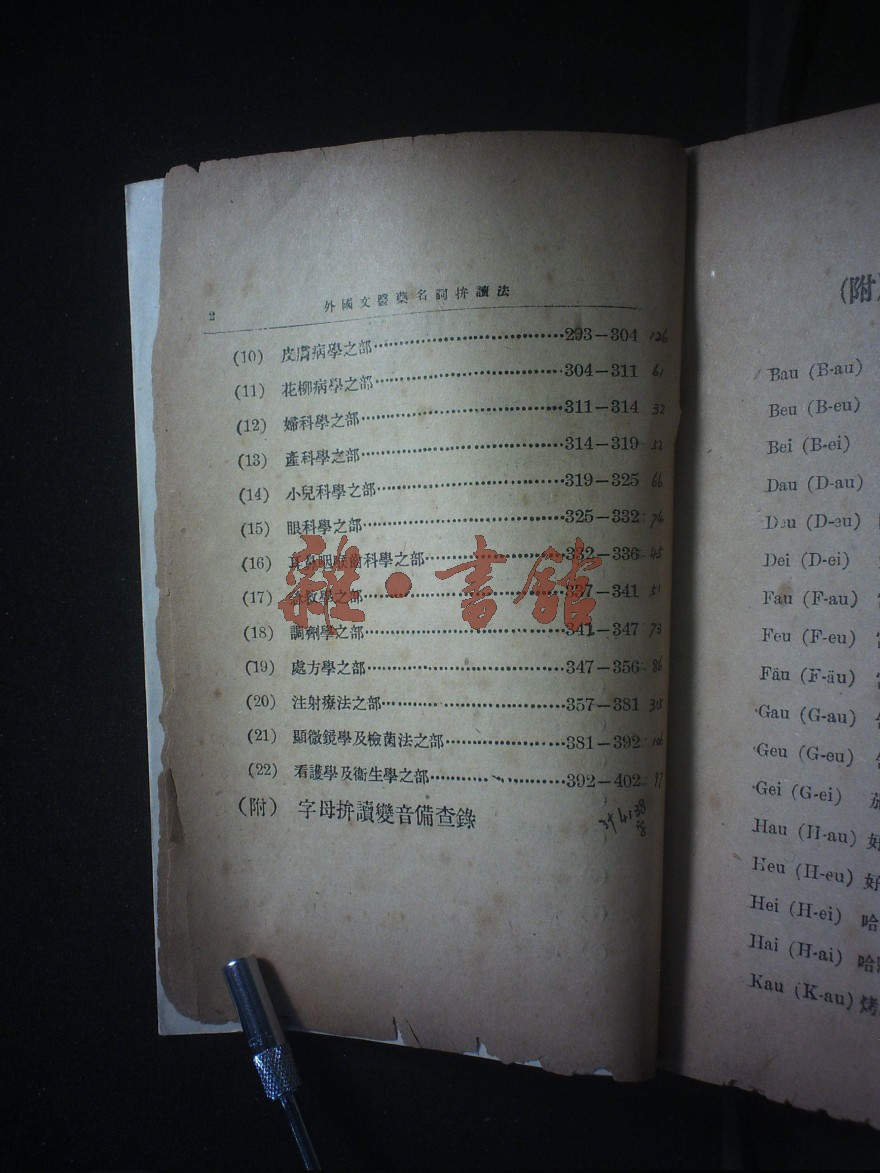 2
外國文醫藥名詞拚讀法
(10) 皮膚病學之部 293—304 126
(11) 花柳病學之部 304—311 61
(12) 婦科學之部 311—314 32
(13) 產科學之部 314—319 52
(14) 小兒科學之部 319—325 66
(15) 眼科學之部 325—332 74
(16) 耳鼻咽喉齒科學之部 332—336 45
(17) 急救學之部 337—341 51
(18) 調劑學之部 341—347 73
(19) 處方學之部 347—356 86
(20) 注射療法之部 357—381 315
(21) 顯微鏡學及檢菌法之部 381—392 106
(22) 看護學及衞生學之部 392—402
(附) 字母拚讀變音備查錄
雜·書館
(附)
Bau (B-au)
Beu (B-eu)
Bei (B-ei)
Dau (D-au)
Deu (D-eu)
Dei (D-ei)
Fau (F-au)
Feu (F-eu)
Fäu (F-äu)
Gau (G-au)
Geu (G-eu)
Gei (G-ei)
Hau (H-au) 好
Heu (H-eu) 好
Hei (H-ei) 哈
Hai (H-ai) 哈
Kau (K-au) 烤